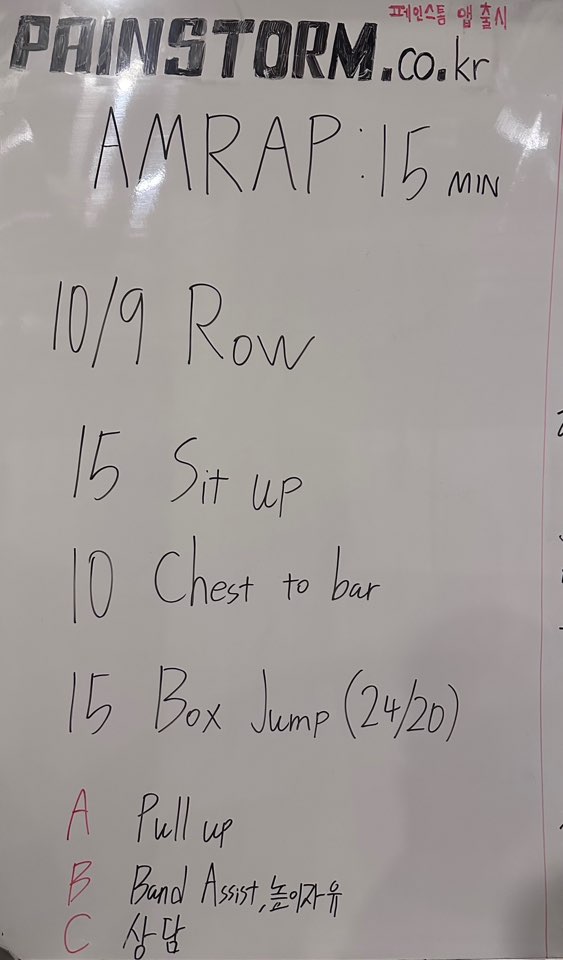 페인스톰 앱 출시
PAINSTORM.co.kr
AMRAP : 15 MIN
10/9 Row
15 Sit up
10 Chest to bar
15 Box Jump (24/20)
A Pull up
B Band Assist, 높이자유
C 상담